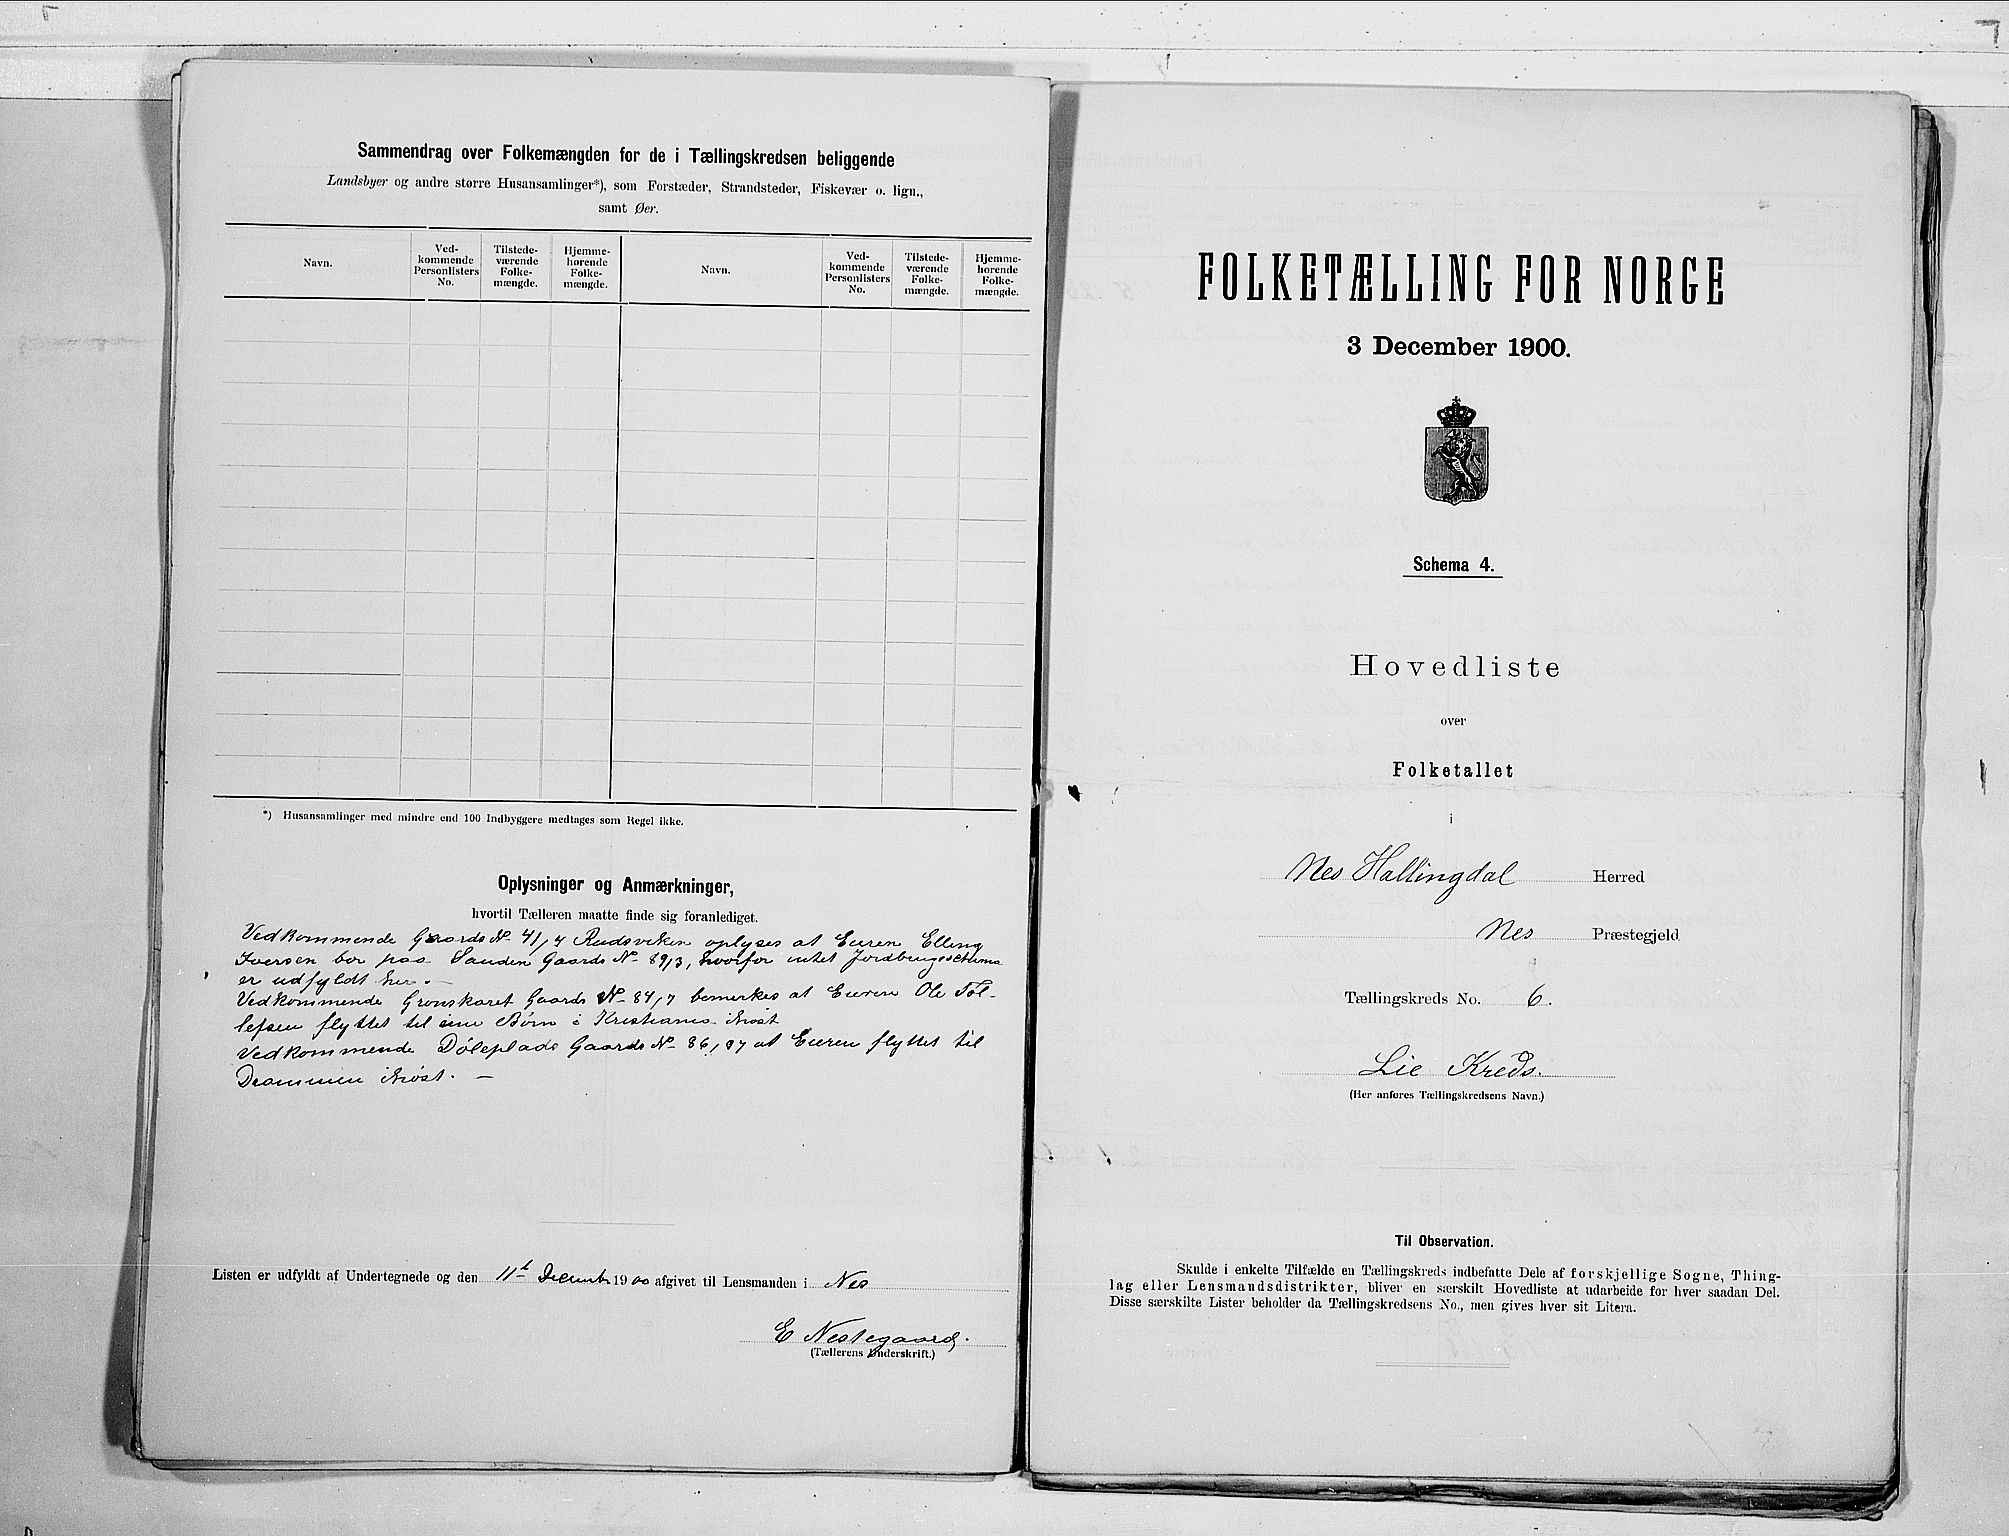 Sammendrag over Folkemængden for de i Tællingskredsen beliggende
Landsbyer og andre større Husansamlinger*), som Forstæder, Strandsteder, Fiskevær o. lign.,
samt Øer.
Navn.
Ved-
kommende
Personlisters
No.
Tilstede-
værende
Folke-
mængde.
Hjemme-
hørende
Folke-
mængde.
Navn.
Ved-
kommende
Personlisters
No.
Tilstede-
værende
Folke-
mængde.
Hjemme-
hørende
Folke-
mængde.
*) Husansamlinger med mindre end 100 Indbyggere medtages som Regel ikke.
Oplysninger og Anmærkninger,
hvortil Tælleren maatte finde sig foranlediget.
Vedkommende Gaards No 41/4 Rudsviken oplyses at Eieren Elling
Iversen bor paa Sanden Gaards No 89/3, hvorfor intet Jordbrugsschema
er udfyldt her. -
Vedkommende Grønskaret Gaards No 84/7 bemerkes at Eieren Ole Tol-
lefsen flyttet til sine Børn i Kristiania ihøst
Vedkommende Døleplads Gaards No 86/97 at Eieren flyttet til
Drammen ihøst. -
Listen er udfyldt af Undertegnede og den 11te Decemb. 1900 afgivet til Lensmanden i Nes
E Nestegaard.
(Tællerens Underskrift.)
FOLKETÆLLING FOR NORGE
3 December 1900.
Schema 4.
Hovedliste
over
Folketallet
i
Nes Hallingdal Herred
Nes Præstegjeld
Tællingskreds No. 6.
Lie Kreds.
(Her anføres Tællingskredsens Navn.)
Til Observation.
Skulde i enkelte Tilfælde en Tællingskreds indbefatte Dele af forskjellige Sogne, Thing-
lag eller Lensmandsdistrikter, bliver en særskilt Hovedliste at udarbeide for hver saadan Del.
Disse særskilte Lister beholder da Tællingskredsens No., men gives hver sit Litera.